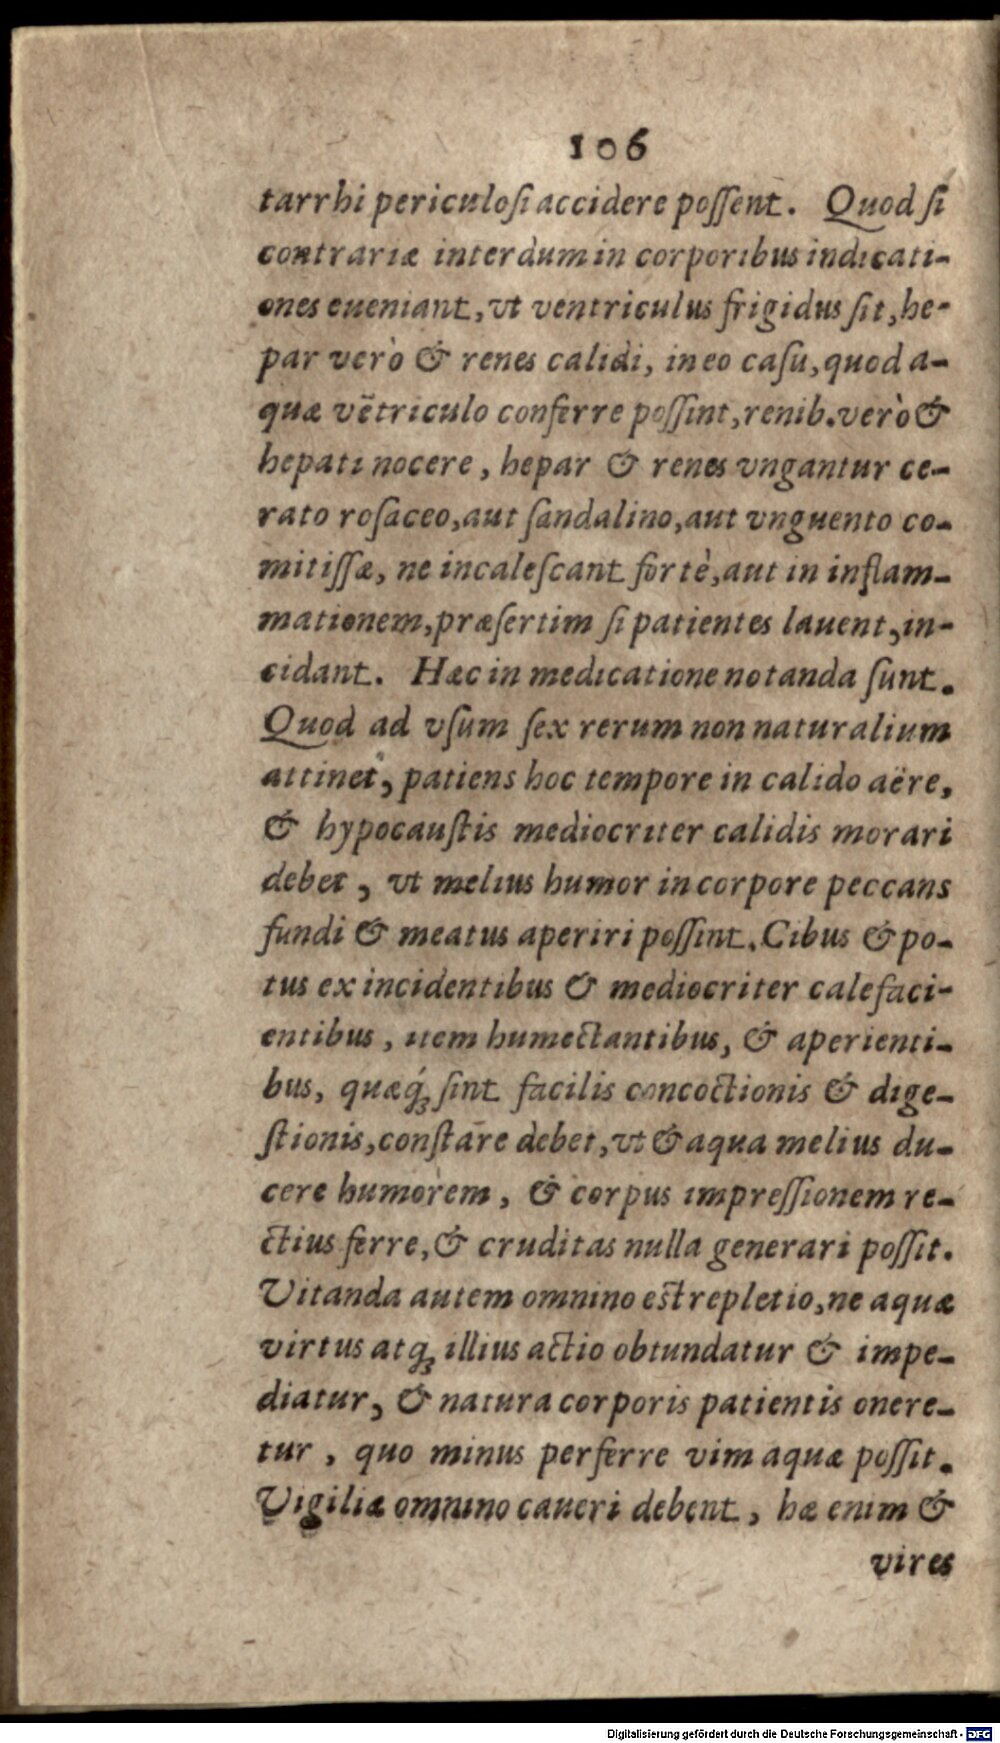 106
tarrhi periculosi accidere possent. Quod si
contrariæ interdum in corporibus indicati-
ones eueniant, vt ventriculus frigidus sit, he-
par verò & renes calidi, in eo casu, quod a-
quæ vẽtriculo conferre possint, renib. verò &
hepati nocere, hepar & renes vngantur ce-
rato rosaceo, aut sandalino, aut vnguento co-
mitissæ, ne incalescant fortè, aut in inflam-
mationem, præsertim si patientes lauent, in-
cidant. Hæc in medicatione notanda sunt.
Quod ad vsum sex rerum non naturalium
attinet, patiens hoc tempore in calido aëre,
& hypocaustis mediocriter calidis morari
debet, vt melius humor in corpore peccans
fundi & meatus aperiri possint. Cibus & po-
tus ex incidentibus & mediocriter calefaci-
entibus, item humectantibus, & aperienti-
bus, quæq́; sint facilis concoctionis & dige-
stionis, constare debet, vt & aqua melius du-
cere humorem, & corpus impressionem re-
ctius ferre, & cruditas nulla generari possit.
Vitanda autem omnino est repletio, ne aquæ
virtus atq; illius actio obtundatur & impe-
diatur, & natura corporis patientis onere-
tur, quo minus perferre vim aquæ possit.
Vigiliæ omnino caueri debent, hæ enim &
vires
Digitalisierung gefördert durch die Deutsche Forschungsgemeinschaft - DFG